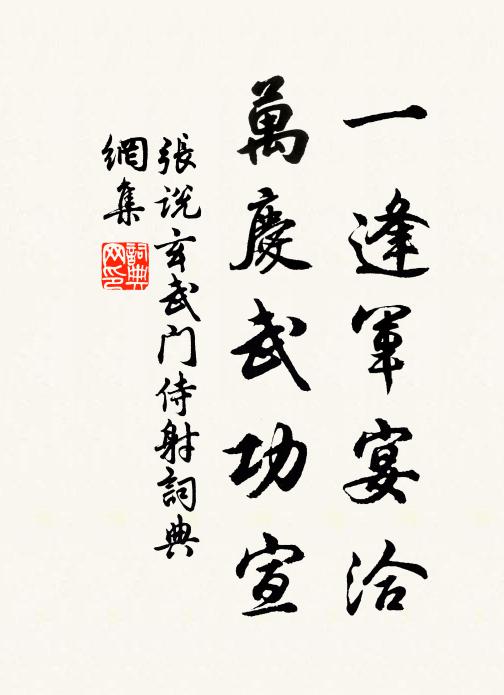 一逢軍宴洽
萬慶武功宣
張説玄武门侍射詞典
網集
詞典
网印